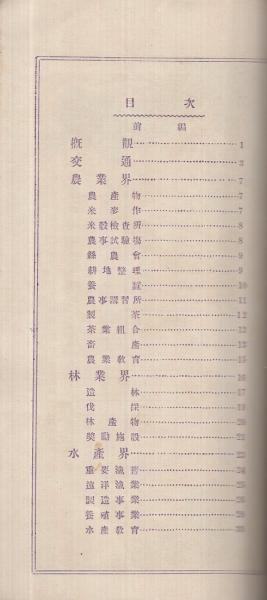 目次
前編
概觀 1
交通 3
農業界 7
農產物 7
米麥作 7
米穀檢查所 8
農事試驗場 8
縣農會 9
耕地整理 9
養蠶 10
農事講習所 11
製茶 12
茶業組合 12
畜產 13
農業教育 15
林業界 16
造林 17
伐採 19
林產物 20
獎勵施設 22
水產界 23
重要漁業 24
遠洋漁業 25
製造事業 26
養殖事業 28
水產教育